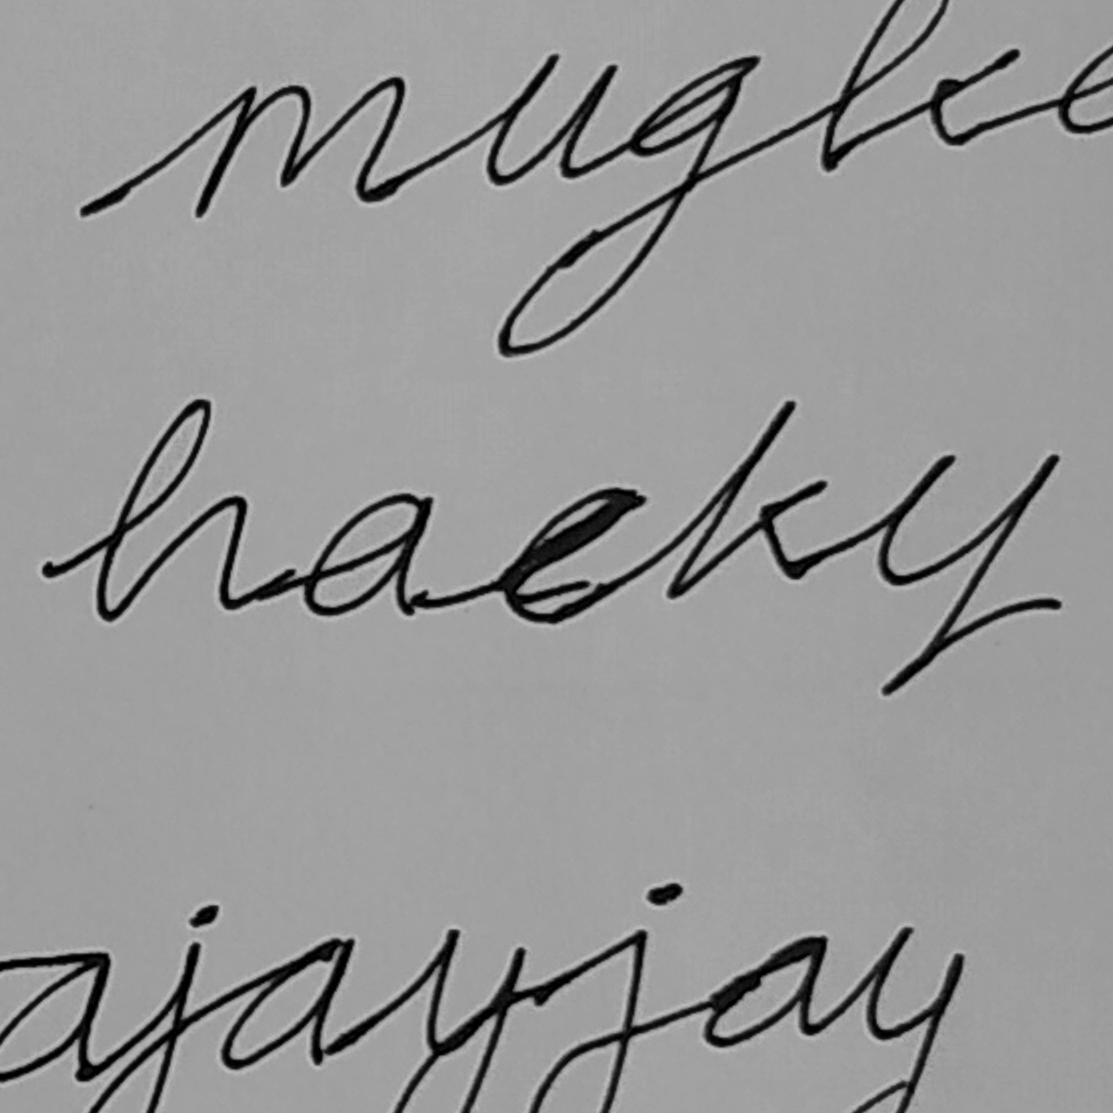 mugke
hacky
ajayjay